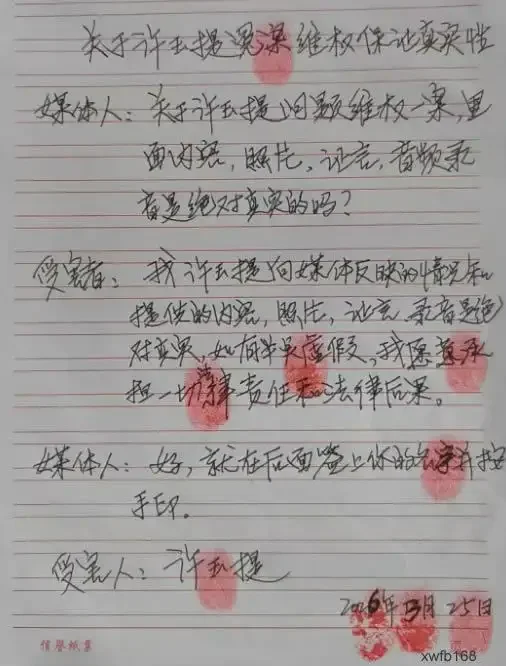 关于许玉提冤案维权保证真实性
媒体人：关于许玉提问题维权一案，里
面内容，照片，证言，音频录
音是绝对真实的吗？
受害者：我许玉提向媒体反映的情况和
提供的内容，照片，证言录音是绝
对真实，如有半点虚假，我愿意承
担一切法律责任和法律后果。
媒体人：好，就在后面签上你的名字并按
手印。
受害人：许玉提
2026年3月25日
信誉纸业
xwfb168